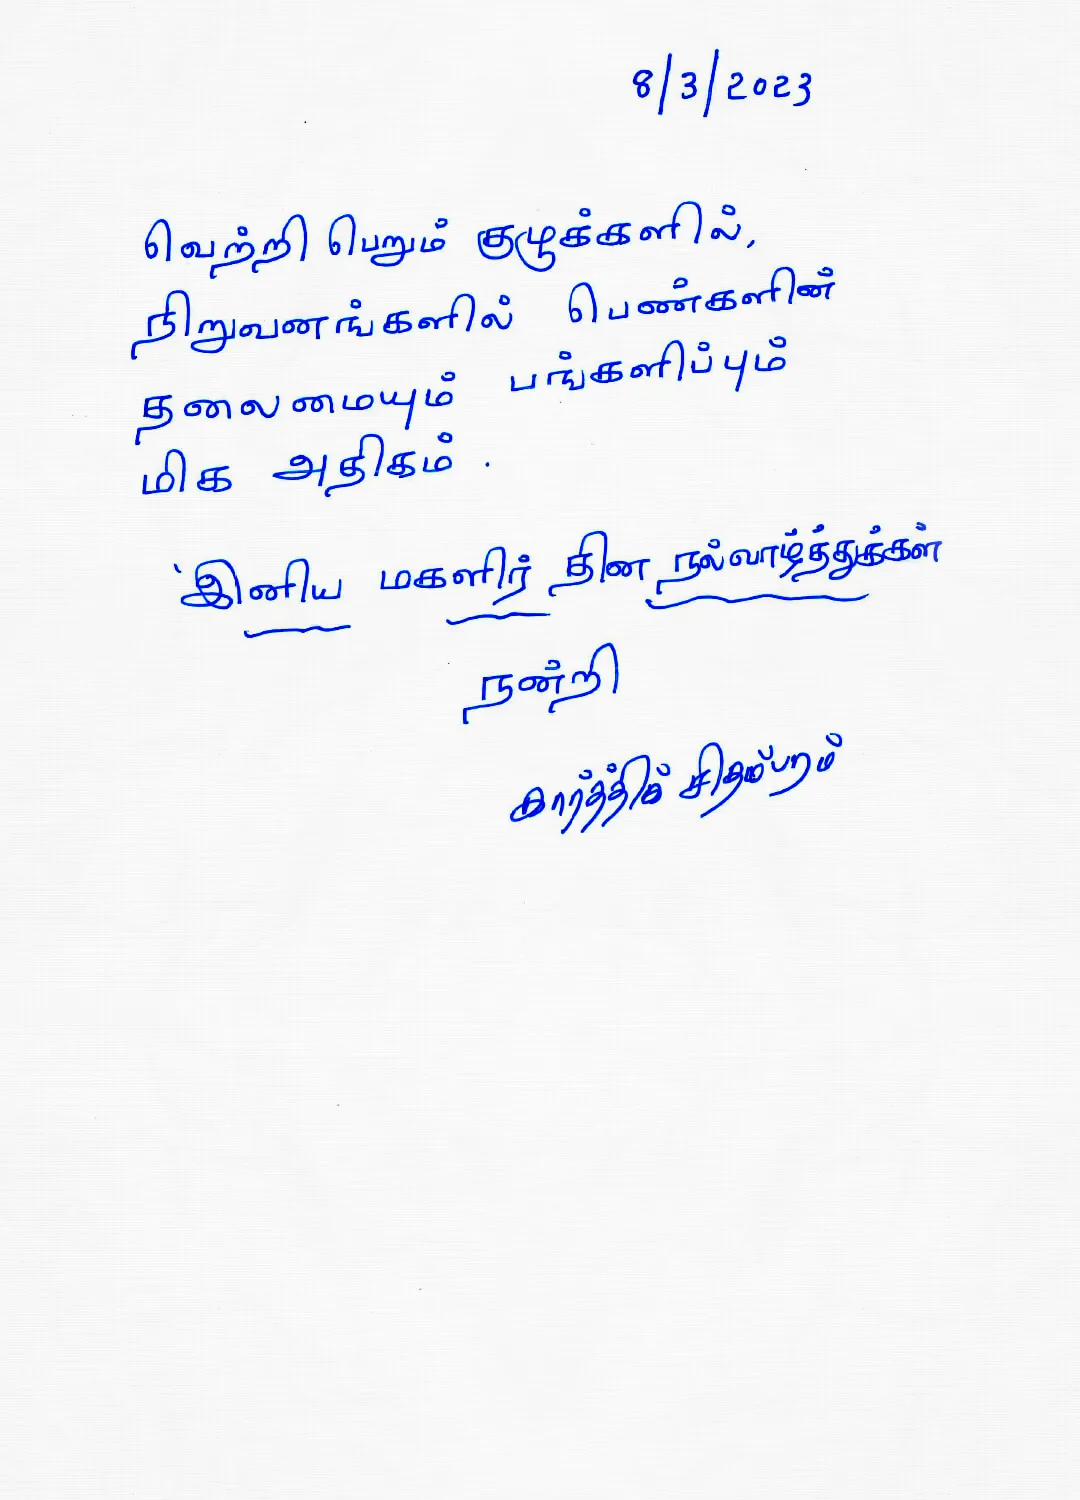 8/3/2023
வெற்றி பெறும் குழுக்களில்,
நிறுவனங்களில் பெண்களின்
தலைமையும் பங்களிப்பும்
மிக அதிகம்.
'இனிய மகளிர் தின நல்வாழ்த்துக்கள்
நன்றி
கார்த்திக் சிதம்பரம்